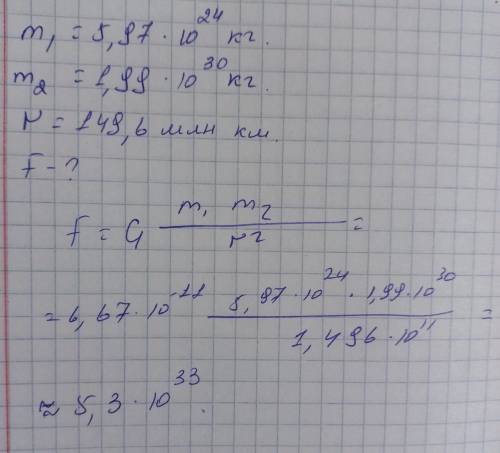 m₁ = 5,97 · 10²⁴ кг.
m₂ = 1,99 · 10³⁰ кг.
r = 149,6 млн км.
F - ?
F = G m₁ m₂ / r² =
= 6,67 · 10⁻¹¹ 5,97 · 10²⁴ · 1,99 · 10³⁰ / 1,496 · 10¹¹ =
≈ 5,3 · 10³³.